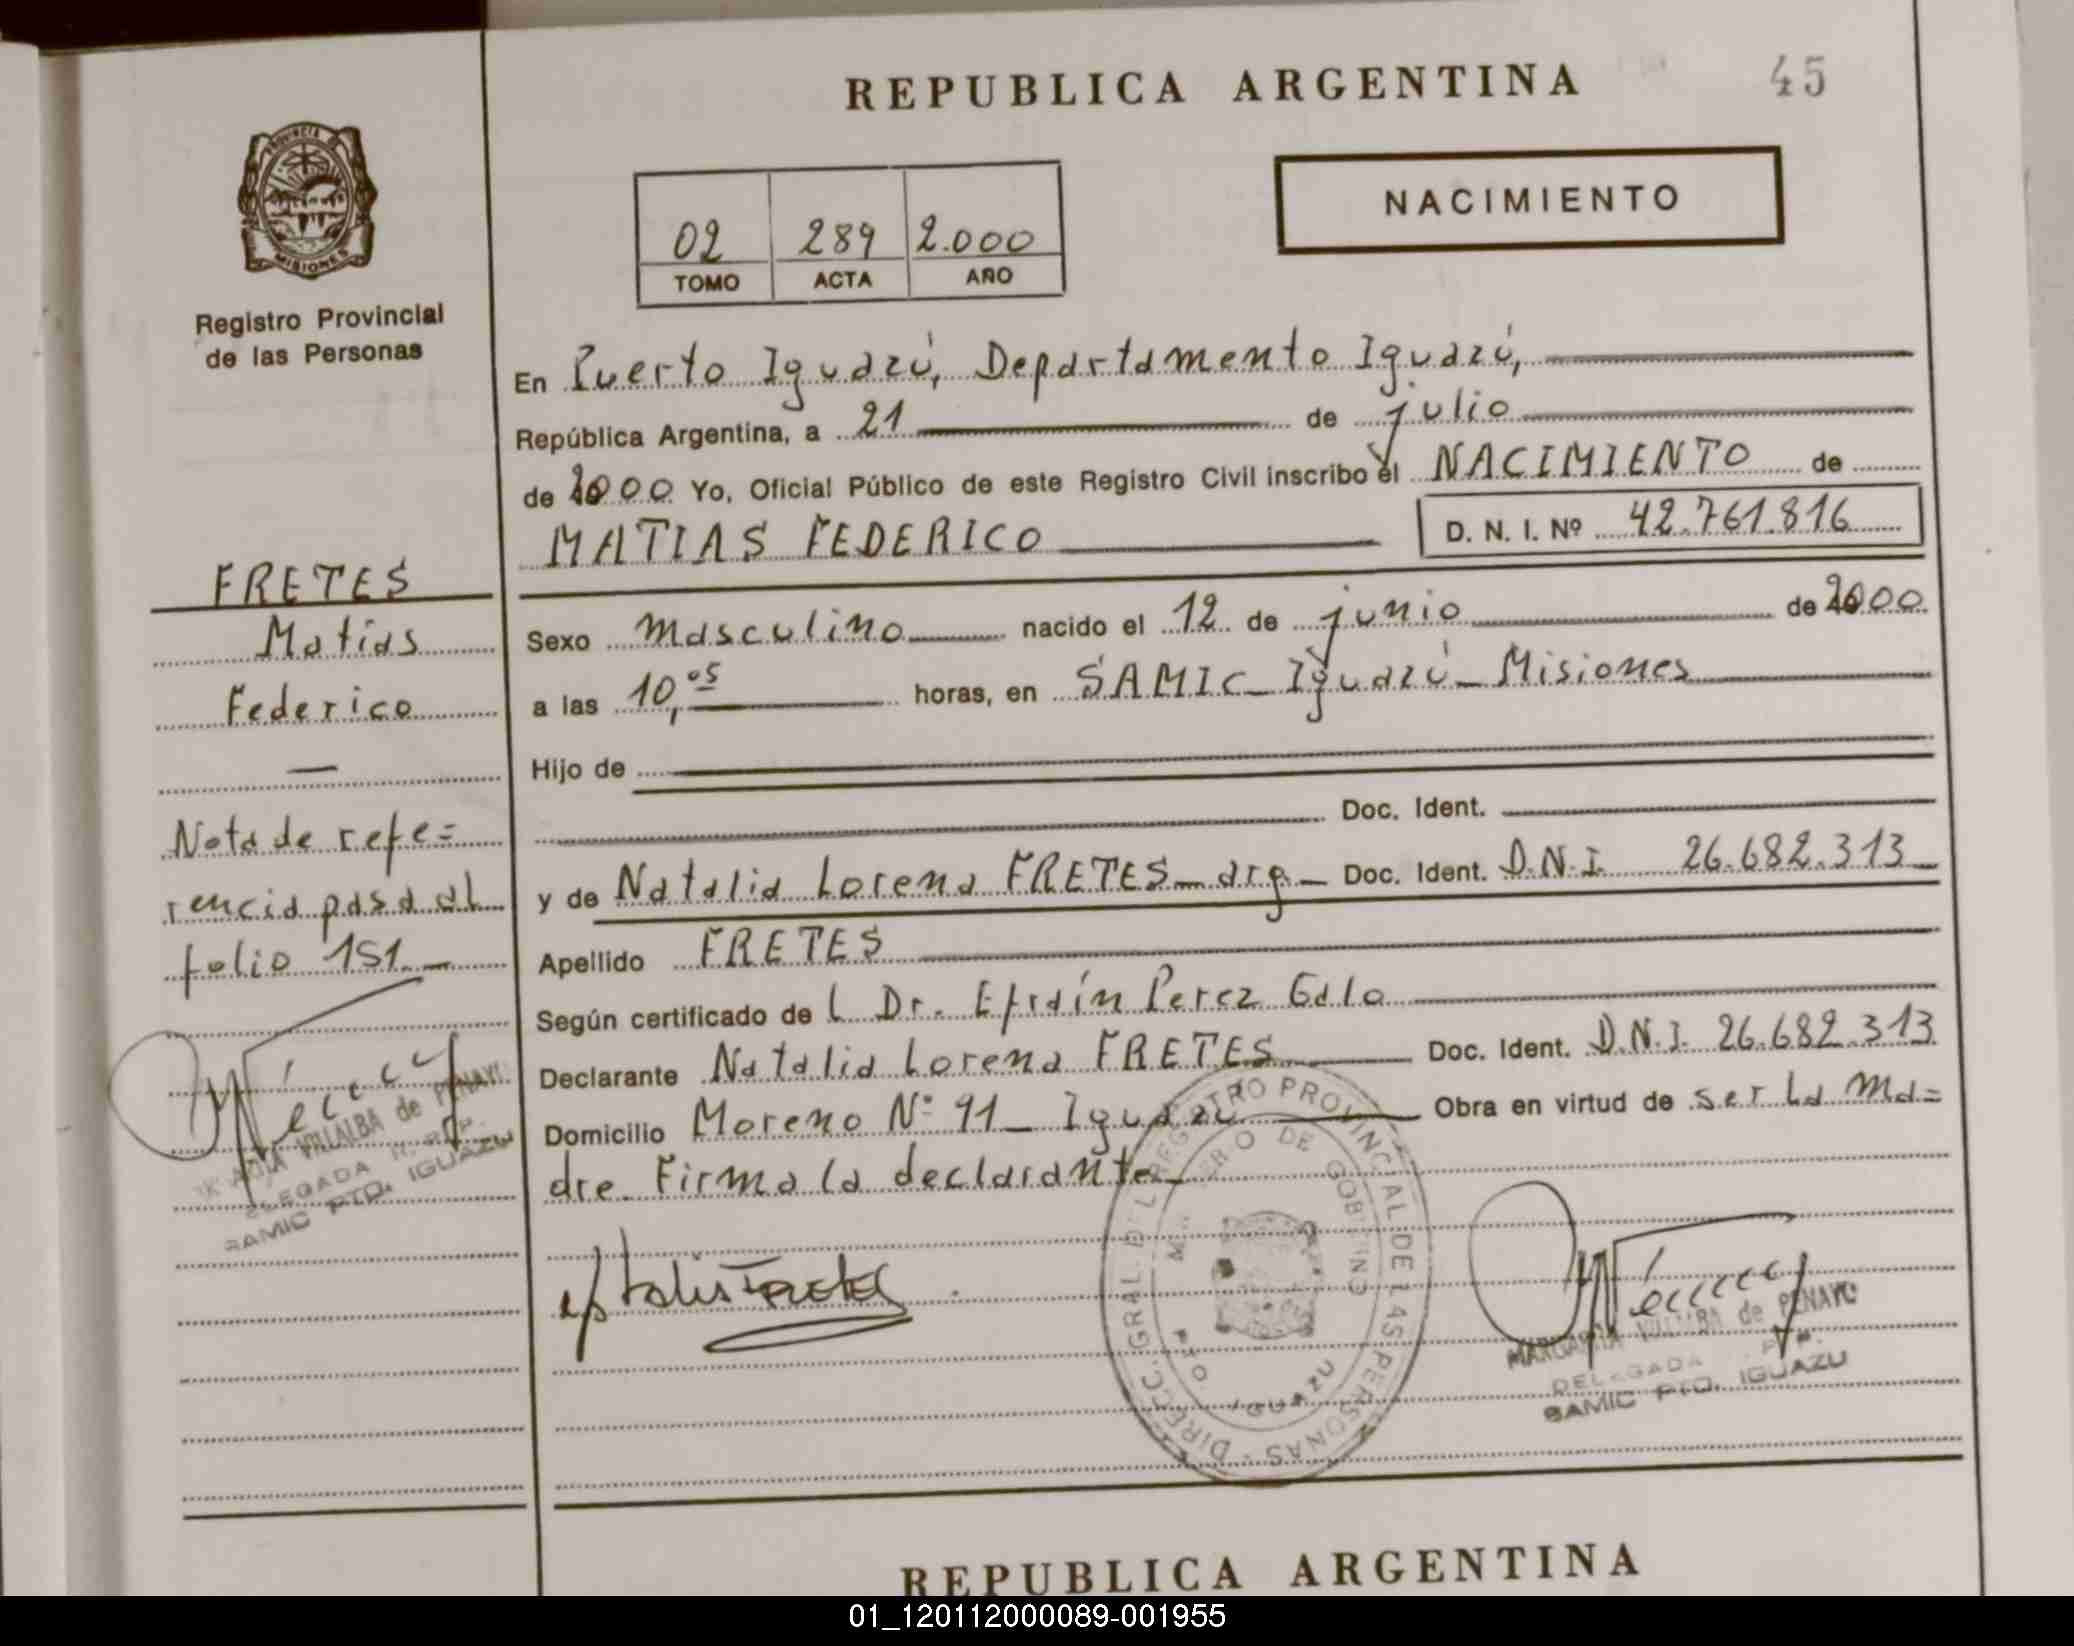 REPUBLICA ARGENTINA
45
PROVINCIA DE
MISIONES
Registro Provincial
de las Personas
02 289 2.000
TOMO ACTA AÑO
NACIMIENTO
En Puerto Iguazú, Departamento Iguazú,
República Argentina, a 21 de julio
de 2000 Yo, Oficial Público de este Registro Civil inscribo el NACIMIENTO de
MATIAS FEDERICO D. N. I. Nº 42.761.816
Sexo masculino nacido el 12 de junio de 2000
a las 10,05 horas, en SAMIC_Iguazú_Misiones
Hijo de
Doc. Ident.
y de Natalia Lorena FRETES_arg_ Doc. Ident. D.N.I. 26.682.313
Apellido FRETES
Según certificado de l Dr. Efraín Perez Galo
Declarante Natalia Lorena FRETES Doc. Ident. D.N.I. 26.682.313
Domicilio Moreno Nº 91_ Iguazú Obra en virtud de ser la ma=
dre. Firma la declarante_
FRETES
Matias
Federico
—
Nota de refe=
rencia pasa al
folio 151._
VILLALBA de PENAYO
DELEGADA
SAMIC PTO. IGUAZU
Natalia FRETES
DIRECC. GRAL. DEL REGISTRO PROVINCIAL DE LAS PERSONAS
DE GOBIERNO
IGUAZU
MARGARITA VILLALBA de PENAYO
DELEGADA
SAMIC PTO. IGUAZU
REPUBLICA ARGENTINA
01_120112000089-001955